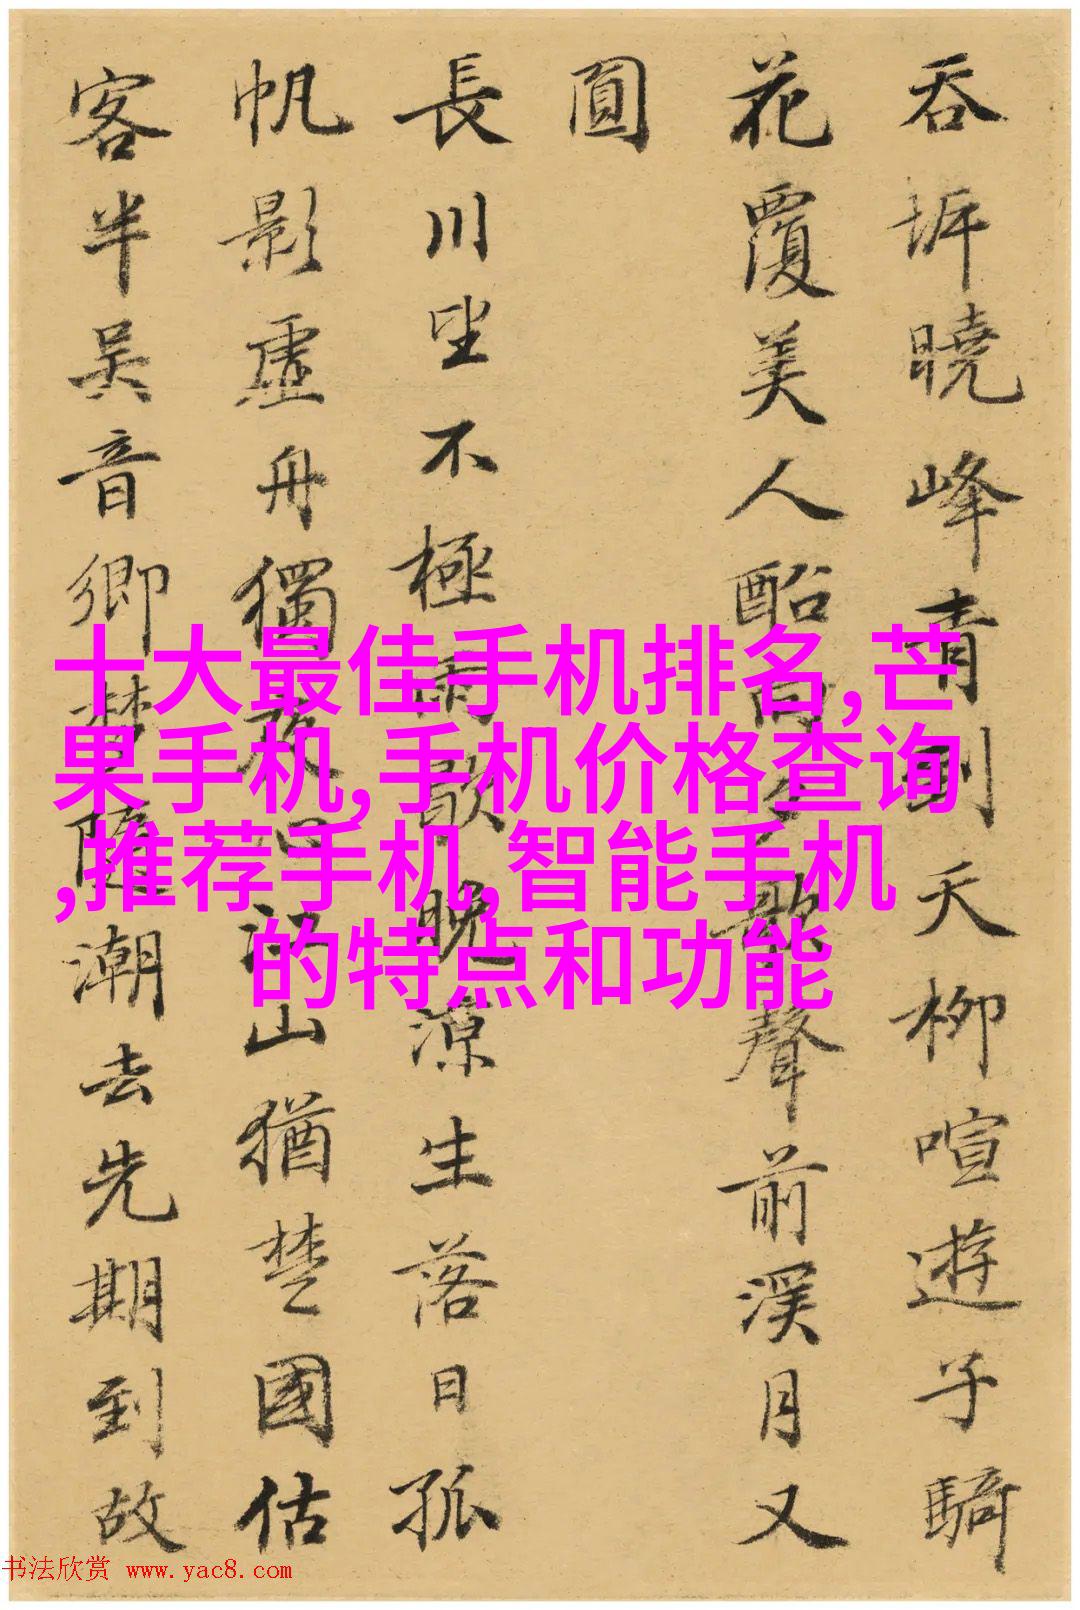 吞坼曉峰青則天柳喧遊子騎
花覆美人歌聲前溪月又
圓
長川望不極雨歇晚涼生落日孤
帆影虛舟獨夜心江山猶楚國估
客半吳音鄉夢隨潮去先期到故
十大最佳手机排名,芒
果手机,手机价格查询
,推荐手机,智能手机
的特点和功能
书法欣赏 www.yac8.com